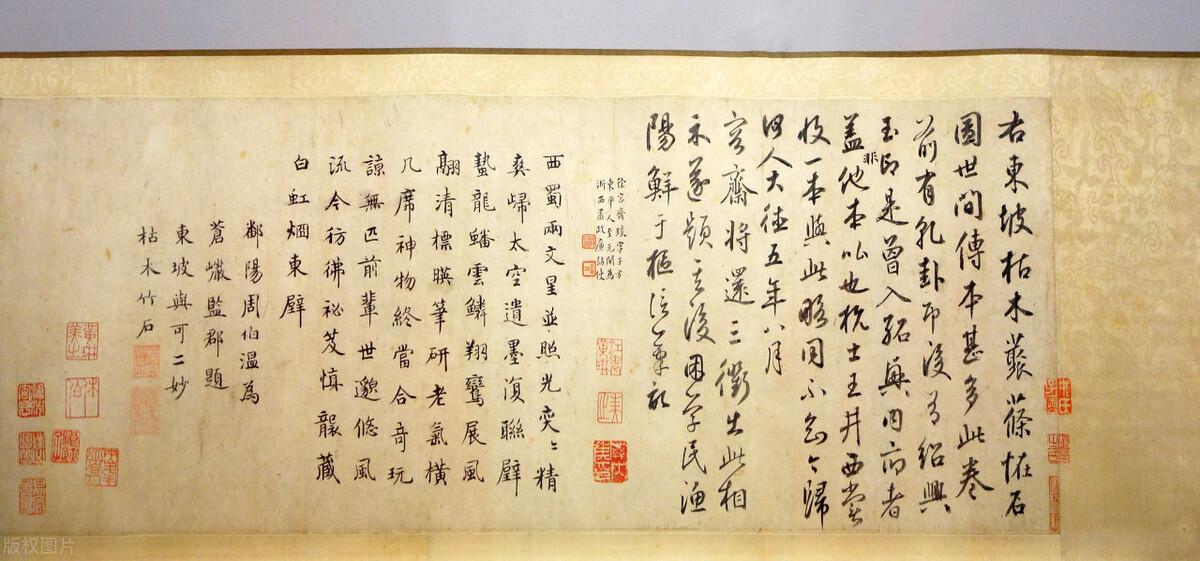 右東坡枯木叢篠怪石
圖世間傳本甚多此卷
前有乳卦印後有紹興
玉印是曾入紹興內府者
蓋非他本比也杭士王井西嘗
收一本與此略同不知今歸
何人大德五年八月
容齋將還三衢出此相
示遂題其後困學民漁
陽鮮于樞伯幾記
徐容齋琰字子方
東平人至元間為
浙西肅政廉訪使
西蜀兩文星並照光奕奕精
爽歸太空遺墨復聯璧
蟄龍蟠雲鱗翔鸞展風
翮清標暎筆研老氣橫
几席神物終當合奇玩
諒無匹前輩世邈悠風
流今彷彿祕芨慎襲藏
白虹烟東壁
鄱陽周伯溫為
蒼巗監郡題
東坡與可二妙
枯木竹石
版权图片